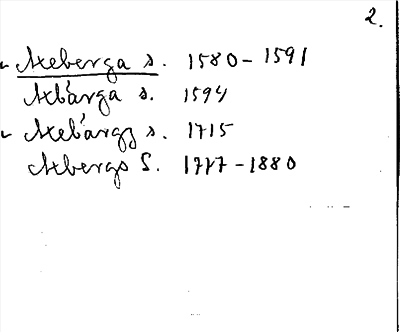 2.
Axeberga s. 1580-1591
Axbärga s. 1594
Axebärgz s. 1715
Axbergs S. 1777-1880